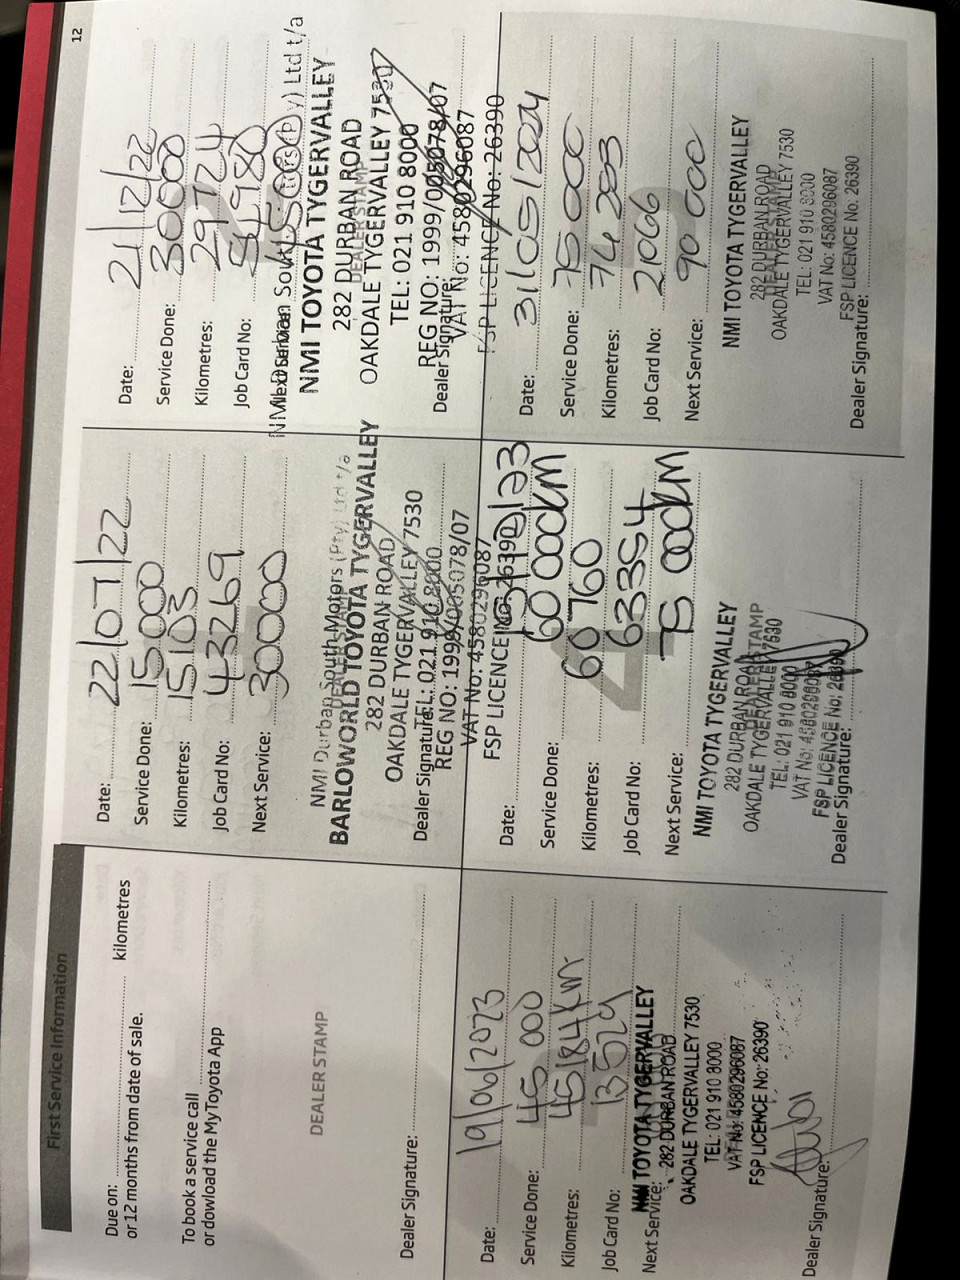 12
First Service Information
Due on: kilometres
or 12 months from date of sale.
To book a service call
or dowload the MyToyota App
DEALER STAMP
Dealer Signature:
Date: 22/07/22
Service Done: 15000
Kilometres: 15103
Job Card No: 43269
Next Service: 30000
NMI Durban South Motors (Pty) Ltd t/a
BARLOWORLD TOYOTA TYGERVALLEY
282 DURBAN ROAD
OAKDALE TYGERVALLEY 7530
TEL: 021 910 8000
Dealer Signature:
REG NO: 1999/005078/07
VAT No: 4580296087
FSP LICENCE No: 26390
Date: 21/12/22
Service Done: 30000
Kilometres: 29724
Job Card No: 54980
Next Service: 45000
NMI Durban South Motors (Pty) Ltd t/a
NMI TOYOTA TYGERVALLEY
282 DURBAN ROAD
DEALER STAMP
OAKDALE TYGERVALLEY 7530
TEL: 021 910 8000
REG NO: 1999/005078/07
Dealer Signature:
VAT No: 4580296087
FSP LICENCE No: 26390
Date: 19/06/2023
Service Done: 45 000
Kilometres: 45184km
Job Card No: 13529
Next Service:
NMI TOYOTA TYGERVALLEY
282 DURBAN ROAD
OAKDALE TYGERVALLEY 7530
TEL: 021 910 8000
VAT No: 4580296087
FSP LICENCE No: 26390
Dealer Signature:
Date:
Service Done: 60 000km
Kilometres: 60760
Job Card No: 63354
Next Service: 75 000km
NMI TOYOTA TYGERVALLEY
282 DURBAN ROAD
DEALER STAMP
OAKDALE TYGERVALLEY 7530
TEL: 021 910 8000
VAT No: 4580296087
FSP LICENCE No: 26390
Dealer Signature:
Date: 31/05/2024
Service Done: 75 000
Kilometres: 74 283
Job Card No: 2066
Next Service: 90 000
NMI TOYOTA TYGERVALLEY
282 DURBAN ROAD
DEALER STAMP
OAKDALE TYGERVALLEY 7530
TEL: 021 910 8000
VAT No: 4580296087
FSP LICENCE No. 26390
Dealer Signature: